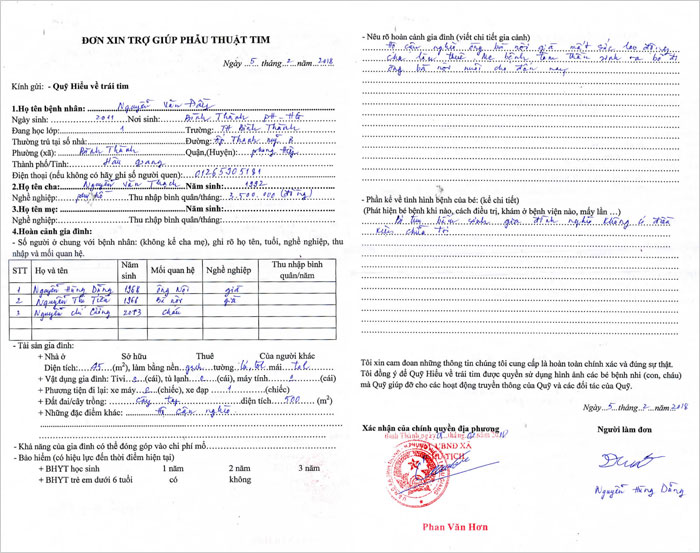 ĐƠN XIN TRỢ GIÚP PHẪU THUẬT TIM
Ngày 5 tháng 2 năm 2018
Kính gửi: - Quỹ Hiểu về trái tim
1.Họ tên bệnh nhân: Nguyễn Văn Đồng
Ngày sinh: 2011 Nơi sinh: Bình Thành PH - HG
Đang học lớp: 1 Trường: TH Bình Thành
Thường trú tại số nhà: Đường: Ấp Thạnh Mỹ A
Phường (xã): Bình Thành Quận,(Huyện): Phụng Hiệp
Thành phố/Tỉnh: Hậu Giang
Điện thoại (nếu không có hãy ghi số người quen): 01265305181
2.Họ tên cha: Nguyễn Văn Thạch Năm sinh: 1992
Nghề nghiệp: phụ hồ Thu nhập bình quân/tháng: 3.500.000 (Đồng)
3.Họ tên mẹ: Năm sinh:
Nghề nghiệp: Thu nhập bình quân/tháng:
4.Hoàn cảnh gia đình:
- Số người ở chung với bệnh nhân: (không kể cha mẹ), ghi rõ họ tên, tuổi, nghề nghiệp, thu
nhập và mối quan hệ.
STT Họ và tên Năm sinh Mối quan hệ Nghề nghiệp Thu nhập bình quân/năm
1 Nguyễn Hùng Dũng 1968 Ông Nội già
2 Nguyễn Thị Tiến 1966 Bà nội già
3 Nguyễn Chí Cường 2013 cháu
- Tài sản gia đình:
+ Nhà ở Sở hữu Thuê Của người khác
Diện tích: (m2), làm bằng nền: gạch tường: lá, tol mái tol
+ Vật dụng gia đình: Tivi (cái), tủ lạnh (cái), máy tính (cái)
+ Phương tiện đi lại: xe máy (chiếc), xe đạp (chiếc)
+ Đất đai/cây trồng: diện tích 500 (m2)
+ Những đặc điểm khác: Hộ cận nghèo
- Khả năng của gia đình có thể đóng góp vào chi phí mổ
- Bảo hiểm (có hiệu lực đến thời điểm hiện tại)
+ BHYT học sinh 1 năm 2 năm 3 năm
+ BHYT trẻ em dưới 6 tuổi có không
- Nêu rõ hoàn cảnh gia đình (viết chi tiết gia cảnh)
Hộ cận nghèo ông bà nội già mất sức lao động
cha làm thuê. Mẹ bệnh tâm thần sinh ra bé thì
ông bà nội nuôi cho đến nay
- Phần kể về tình hình bệnh của bé: (kể chi tiết)
(Phát hiện bé bệnh khi nào, cách điều trị, khám ở bệnh viện nào, mấy lần …)
bẩm sinh gia đình nghèo không có điều
kiện chữa trị
Tôi xin cam đoan những thông tin chúng tôi cung cấp là hoàn toàn chính xác và đúng sự thật.
Tôi đồng ý để Quỹ Hiểu về trái tim được quyền sử dụng hình ảnh các bé bệnh nhi (con, cháu)
mà Quỹ giúp đỡ cho các hoạt động truyền thông của Quỹ và các đối tác của Quỹ.
Ngày 5 tháng 2 năm 2018
Xác nhận của chính quyền địa phương Người làm đơn
Bình Thành, ngày tháng năm 2018
UBND XÃ
TỊCH
Nguyễn Hùng Dũng
Phan Văn Hơn